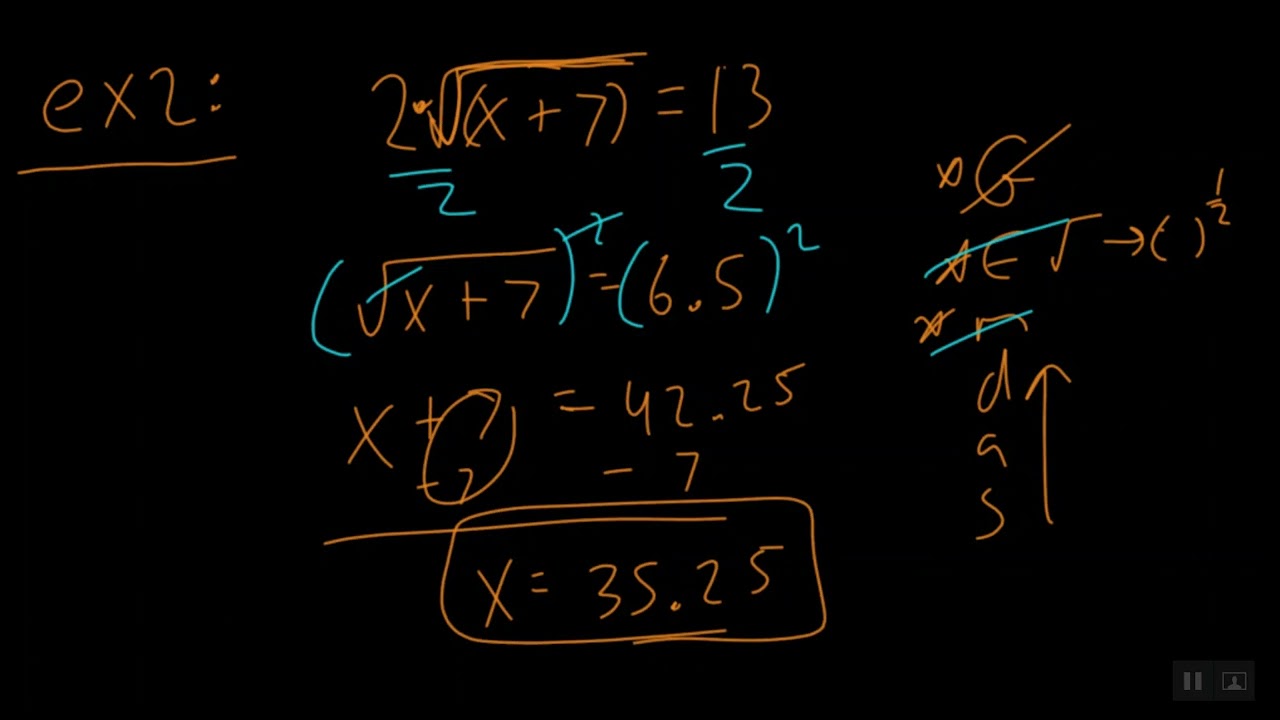 ex2:
2·√(x+7) = 13
2 2
(√x+7)² = (6.5)²
x+7 = 42.25
-7 -7
x = 35.25
* G
* E √ → ( )^1/2
* m
d
a
s